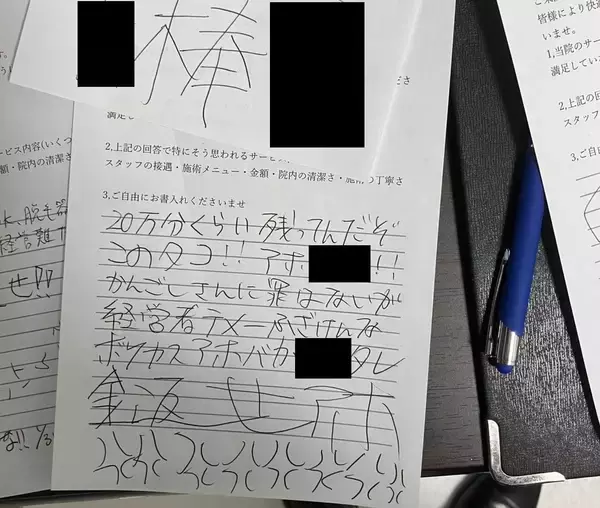 棒
満足し
2,上記の回答で特にそう思われるサービス
スタッフの接遇・施術メニュー・金額・院内の清潔さ・施術の丁寧さ
3,ご自由にお書入れくださいませ
20万分くらい残ってんだぞ
このタコ!! アホ !!
かんごしさんに罪はないが
経営者テメーふざけんな
ボケカスアホバカ タレ
金返せ
ービス内容(いくつ
額・院内の清潔さ・
脱毛器
経営難
せ!!
皆様により快適
いませ。
1,当院のサー
満足してい
2,上記の
スタッフの接
3,ご